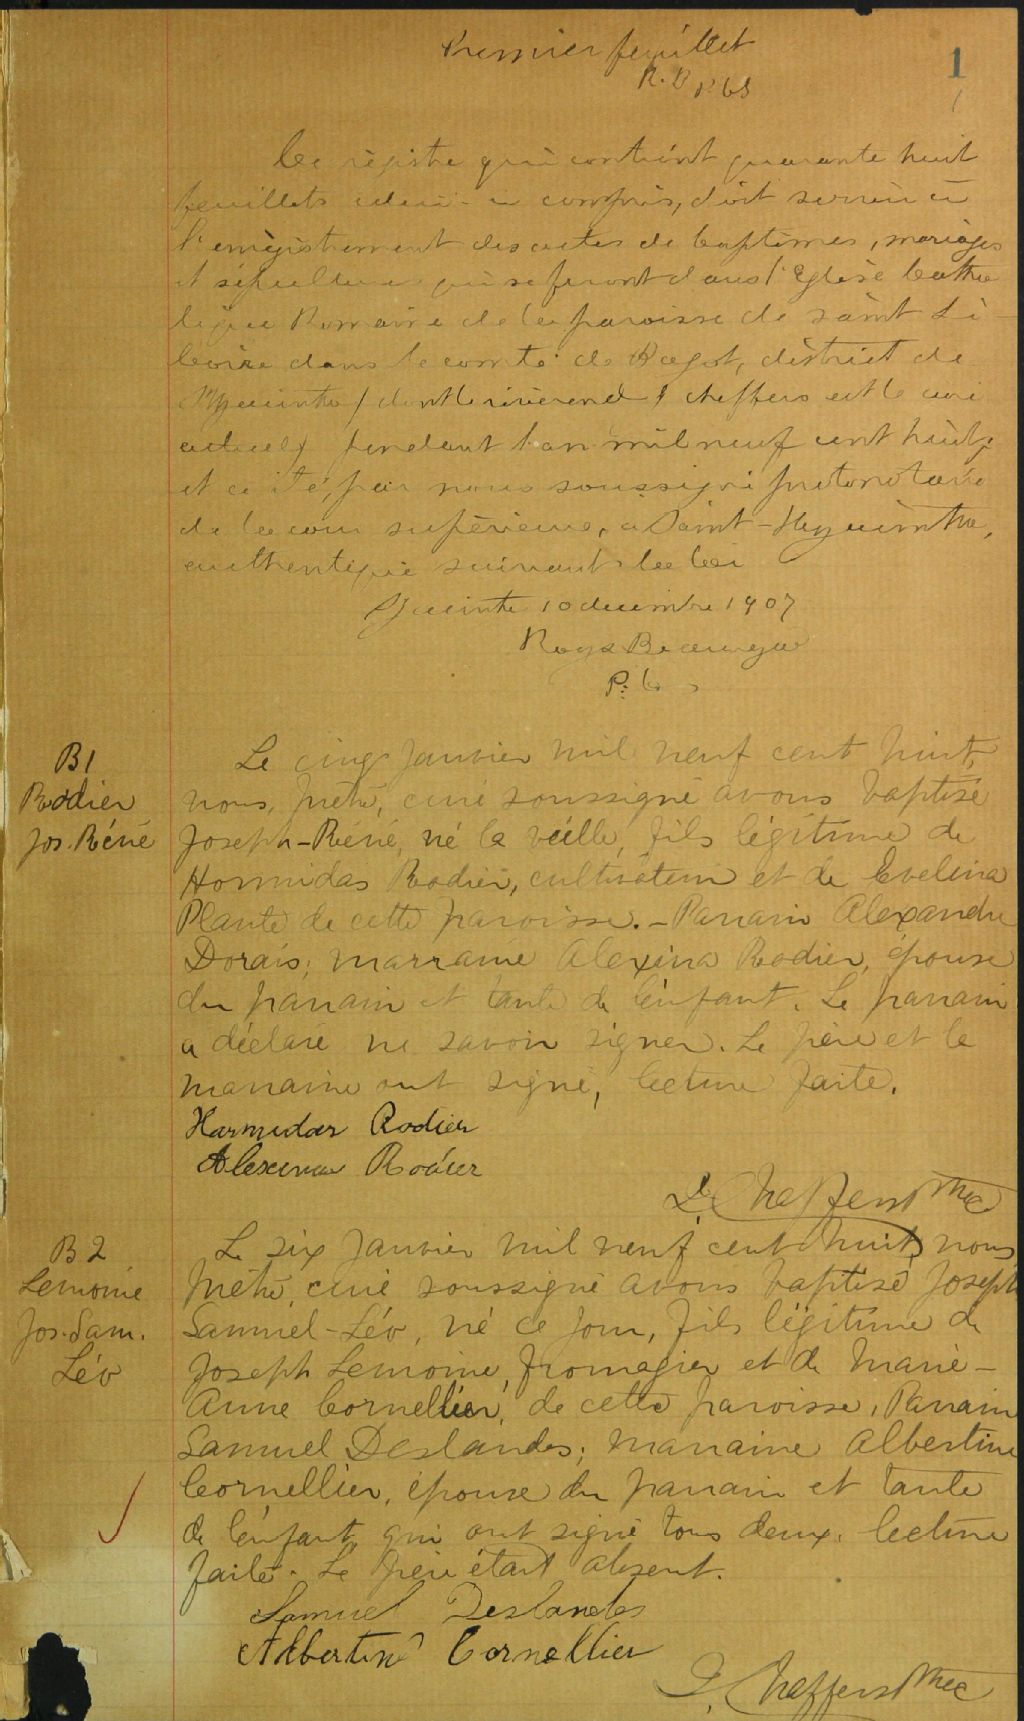 Premier feuillet
1
R. B P. C S
Ce registre qui contient quarante huit
feuillets celui-ci compris, doit servir à
l'enregistrement des actes de baptêmes, mariages
et sépultures qui se feront dans l'Eglise Catho
lique Romaine de la paroisse de saint Li-
boire dans le comté de Bagot, district de
St Hyacinthe / dont le révérend Cheffers est le curé
actuel / pendant l'an mil neuf cent huit,
et a été, par nous soussigné protonotaire
de la cour supérieure, a Saint-Hyacinthe,
authentiqué suivant la loi
St Hyacinthe 10 decembre 1907
Roy & Beauregard
P. C S
B1
Rodier
Jos. Réné
Le cinq Janvier mil neuf cent huit,
nous, prêtre, curé soussigné avons baptisé
Joseph-Réné, né la veille, fils légitime de
Hormidas Rodier, cultivateur et de Evelina
Plante de cette paroisse. - Parrain Alexandre
Dorais; marraine Alexina Rodier, épouse
du parrain et tante de l'enfant. Le parrain
a déclaré ne savoir signer. Le père et la
marraine ont signé, lecture faite.
Harmidas Rodier
Alexina Rodier
Cheffers Ptre
B 2
Lemoine
Jos. Sam.
Léo
Le six Janvier mil neuf cent huit, nous
prêtre, curé soussigné avons baptisé Joseph
Samuel-Léo, né ce jour, fils légitime de
Joseph Lemoine, fromagier et de Marie-
Anne Cornellier, de cette paroisse, Parrain
Samuel Deslandes; marraine Albertine
Cornellier, épouse du parrain et tante
de l'enfant, qui ont signé tous deux. lecture
faite. Le père étant absent.
Samuel Deslandes
Albertine Cornellier
Cheffers Ptre